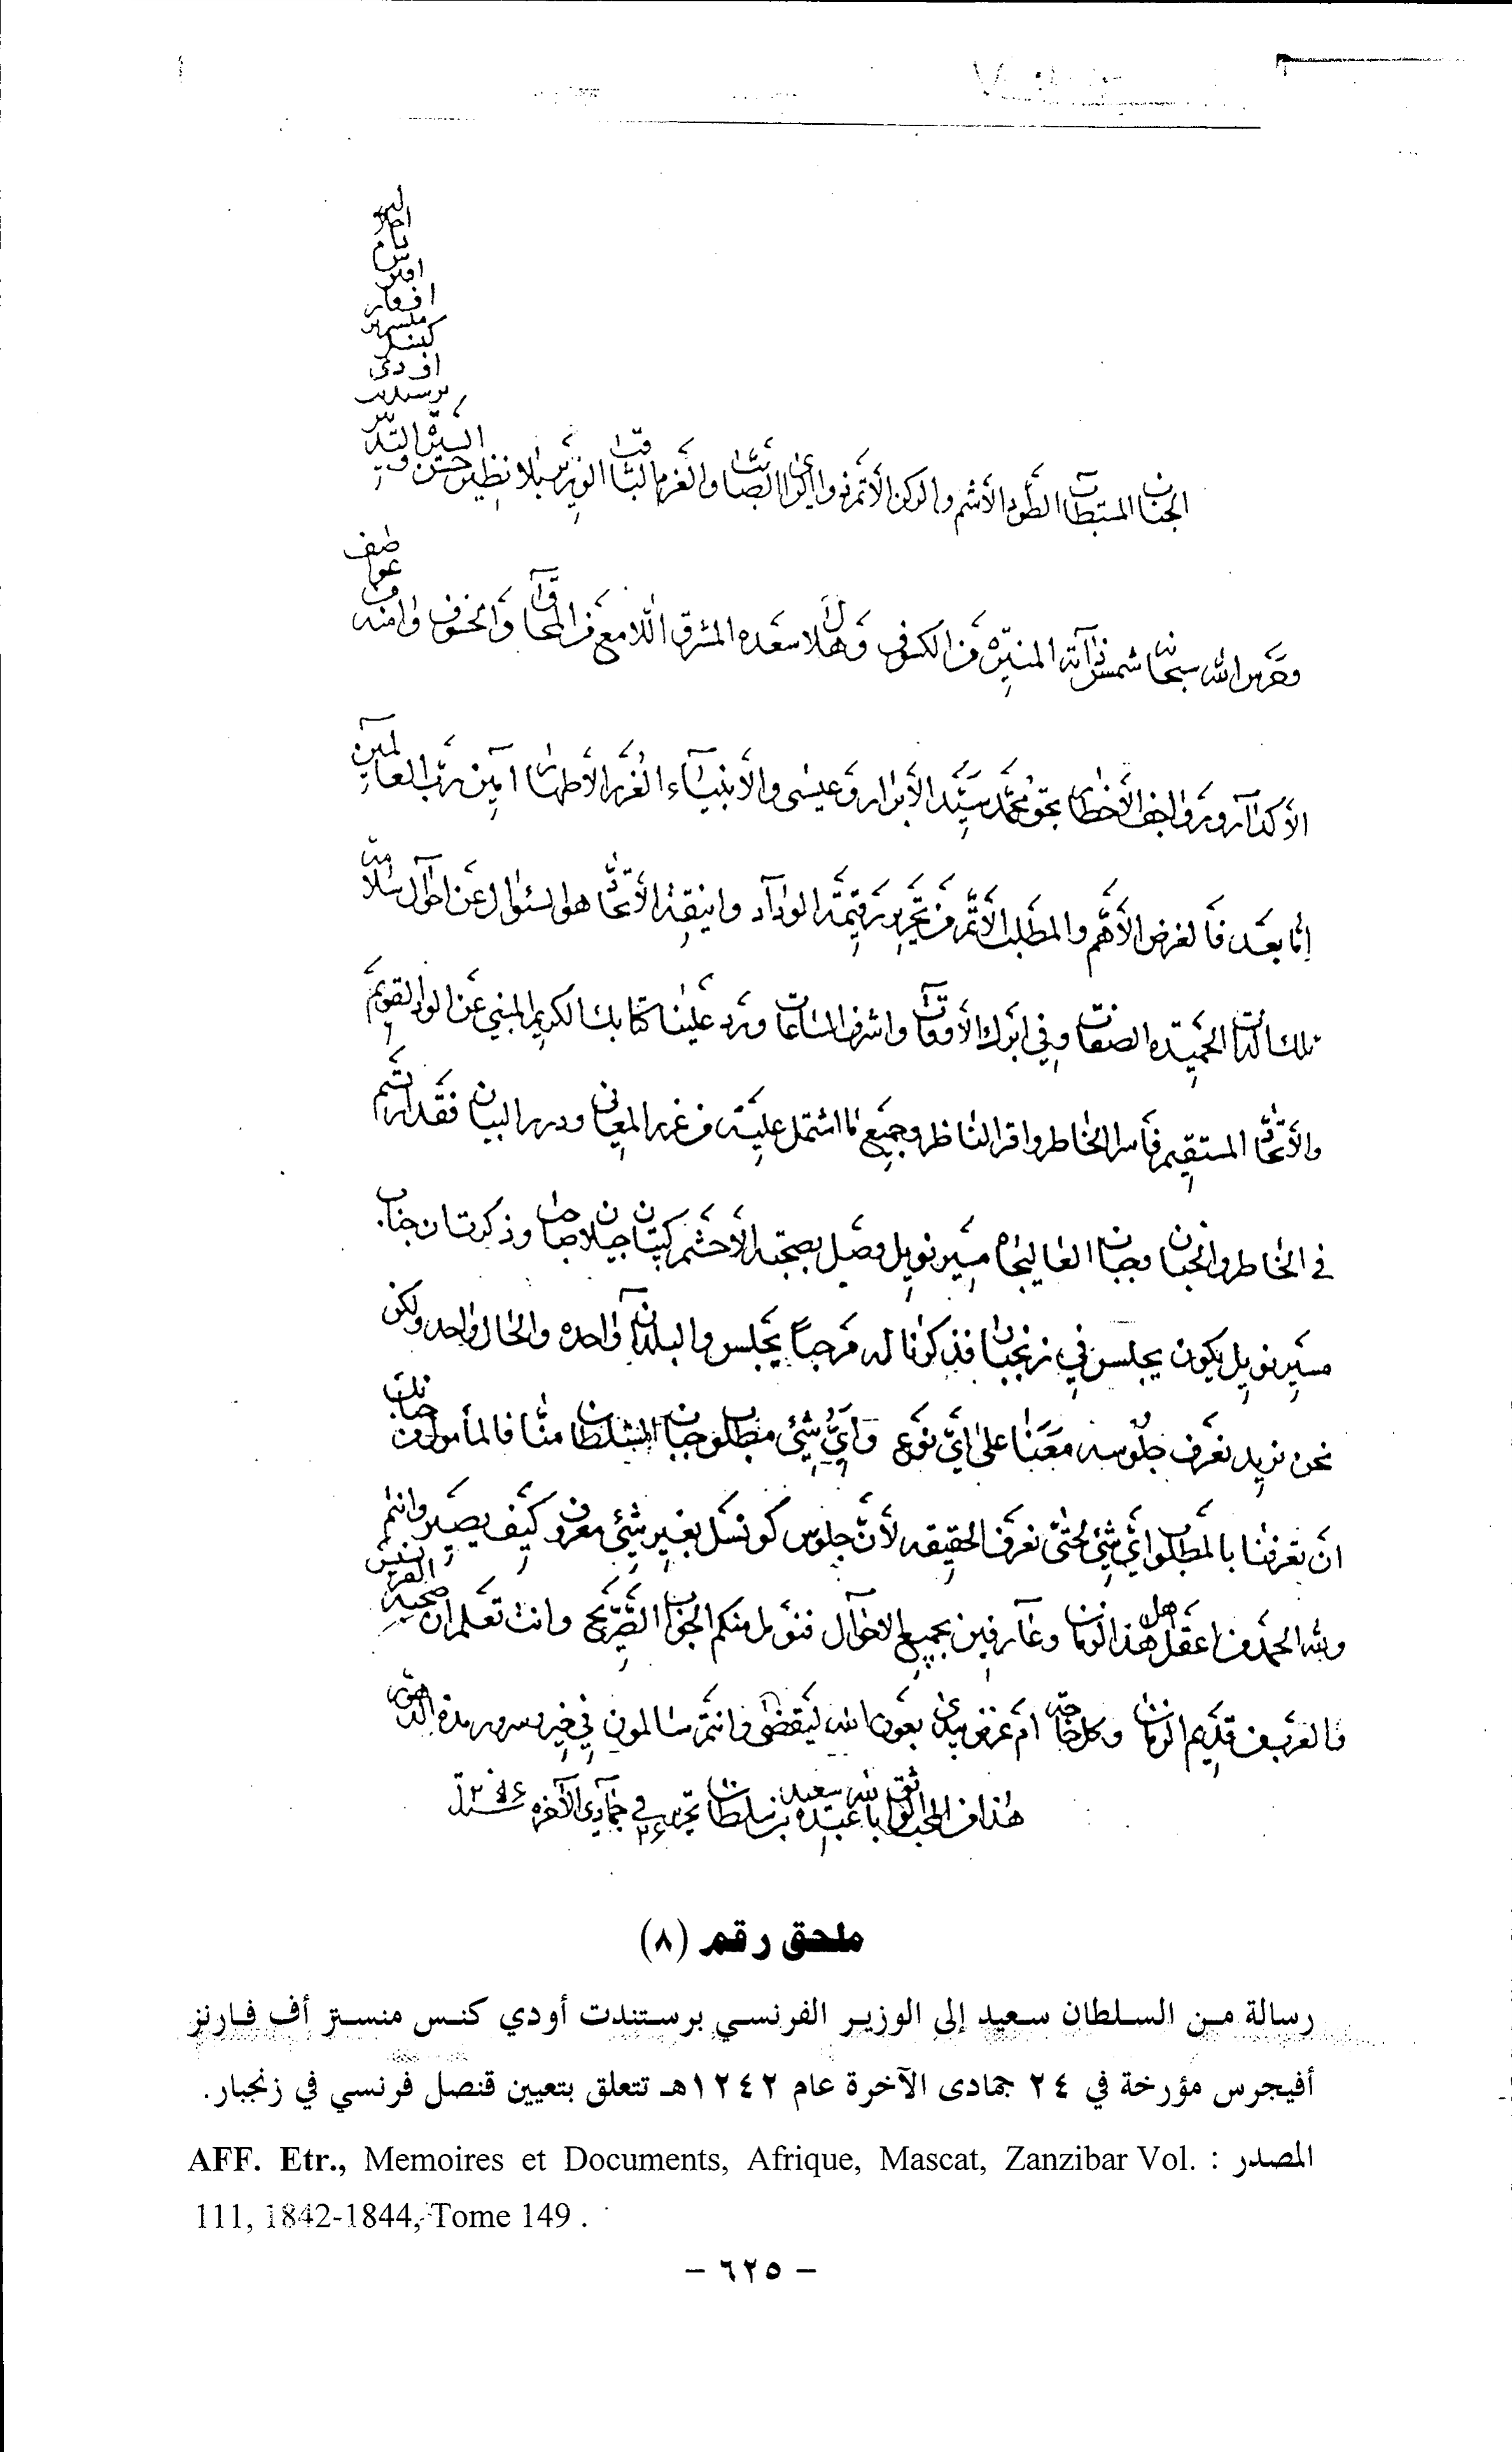 الجناب المستطاب الطود الأشم والركن الأتم ذو الرأي الصائب والعزم الثاقب الوزير بلا نظير حشمت
السيد
برسيدند
اف دي
كنسل
منستر
اف
وحرس الله سبحانه شمس ذاته المنيره من الكسوف وهلال سعده المشرق اللامع من المحاق والخسوف وامنه من عواصف
الأكدار ورواجف الأخطار بحق محمد سيد الأبرار وعيسى والأنبياء الغرر الأطهار آمين رب العالمين
اما بعد فالغرض الأهم والمطلب الأتم من تحرير رقيمة الوداد ونميقة الأتحاد هو السئوال عن احوال سلامة
تلك الذات الحميده الصفات وفي ابرك الأوقات واشرف الساعات ورد علينا كتابك الكريم المنبي عن الوداد القويم
والأتحاد المستقيم فأسر الخاطر واقر الناظر وجميع ما اشتمل عليه من غرر المعاني ودرر البيان فقد ارتسم
في الخاطر والجنان وجناب العاليجاه مسير نويل وصل بصحبة الأحشم كپتان جيلان صاحب وذكرت ان جناب
مسير نويل يكون يجلس في زنجبار فذكرنا له مرحباً يجلس والبلدان واحده والحال واحد ولكن
نحن نريد نعرف جلوسه معنا على ايّ نوع وايّ شيئ مطلوب جناب السلطان منّا فالمأمول من جنابك
انّ تعرفنا بالمطلوب ايّ شيئ حتى نعرف الحقيقه لأنّ جلوس كونسل بغير شيئ معروف كيف يصير وانتم
ولله الحمد من اعقل اهل هذا الزمان وعارفين بجميع الاحوال فنؤمل منكم الجواب الصريح وانت تعلم ان صحبة الفرنسيس
والعرب من قديم الزمان وكل حاجة ام غرض يبدى بعون الله ليقضى وانتم سالمون في خير وسرور مدة
هذا من المحب الواثق بالله عبده سعيد بن سلطان تحرير في ٢٤ جمادى الآخره سنة
ملحق رقم (٨)
رسالة من السلطان سعيد إلى الوزير الفرنسي برستندت أودي كنس منستر أف فارنز
أفيجرس مؤرخة في ٢٤ جمادى الآخرة عام ١٢٤٢هـ تتعلق بتعيين قنصل فرنسي في زنجبار.
المصدر : AFF. Etr., Memoires et Documents, Afrique, Mascat, Zanzibar Vol.
111, 1842-1844, Tome 149 .
– ٦٢٥ –